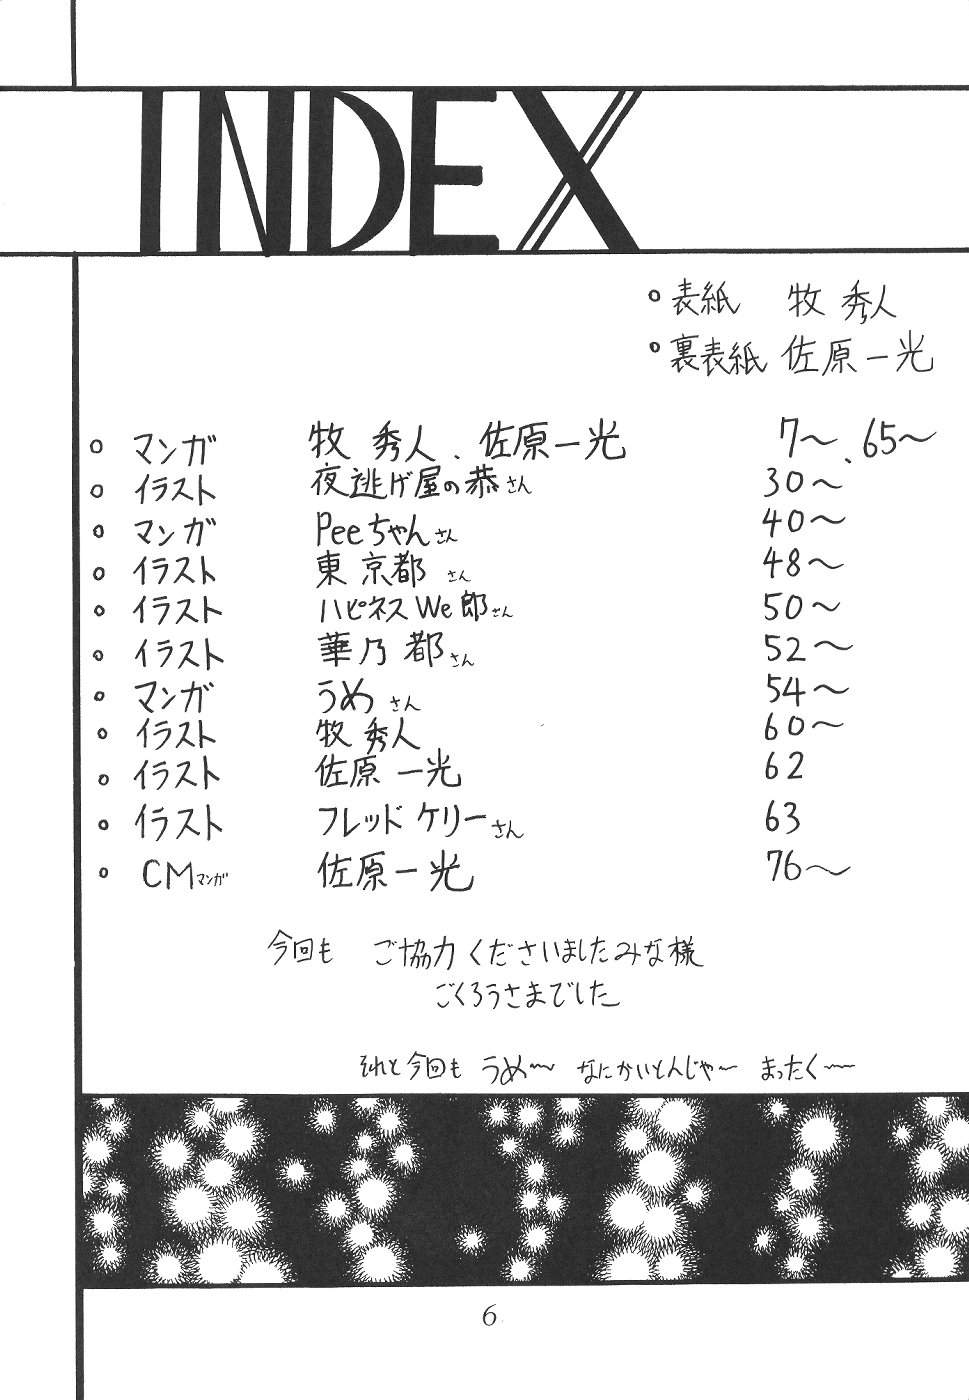 INDEX
○表紙 牧 秀人
○裏表紙 佐原一光
○ マンガ 牧 秀人、佐原一光 7〜、65〜
○ イラスト 夜逃げ屋の恭さん 30〜
○ マンガ Peeちゃんさん 40〜
○ イラスト 東 京都 さん 48〜
○ イラスト ハピネスWe郎さん 50〜
○ イラスト 華乃 都さん 52〜
○ マンガ うめ さん 54〜
○ イラスト 牧 秀人 60〜
○ イラスト 佐原 一光 62
○ イラスト フレッド ケリーさん 63
○ CMマンガ 佐原一光 76〜
今回も ご協力くださいましたみな様
ごくろうさまでした
それと今回も うめ〜 なにかいとんじゃ〜 まったく〜
6